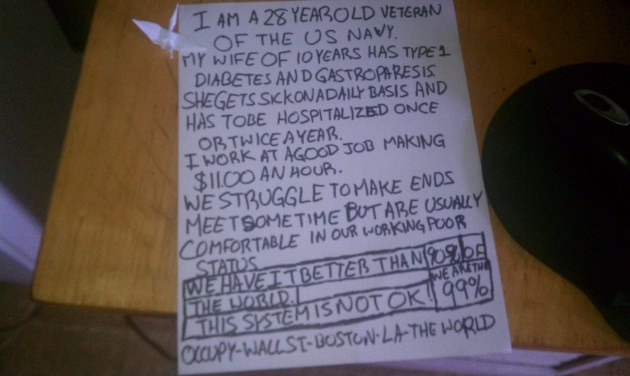 I AM A 28 YEAR OLD VETERAN
OF THE US NAVY.
MY WIFE OF 10 YEARS HAS TYPE 1
DIABETES AND GASTROPARESIS
SHE GETS SICK ON A DAILY BASIS AND
HAS TO BE HOSPITALIZED ONCE
OR TWICE A YEAR.
I WORK AT A GOOD JOB MAKING
$11.00 AN HOUR.
WE STRUGGLE TO MAKE ENDS
MEET SOMETIME BUT ARE USUALLY
COMFORTABLE IN OUR WORKING POOR
STATUS
WE HAVE IT BETTER THAN 90% OF
THE WORLD.
THIS SYSTEM IS NOT OK!
WE ARE THE
99%
OCCUPY-WALL ST-BOSTON-LA-THE WORLD